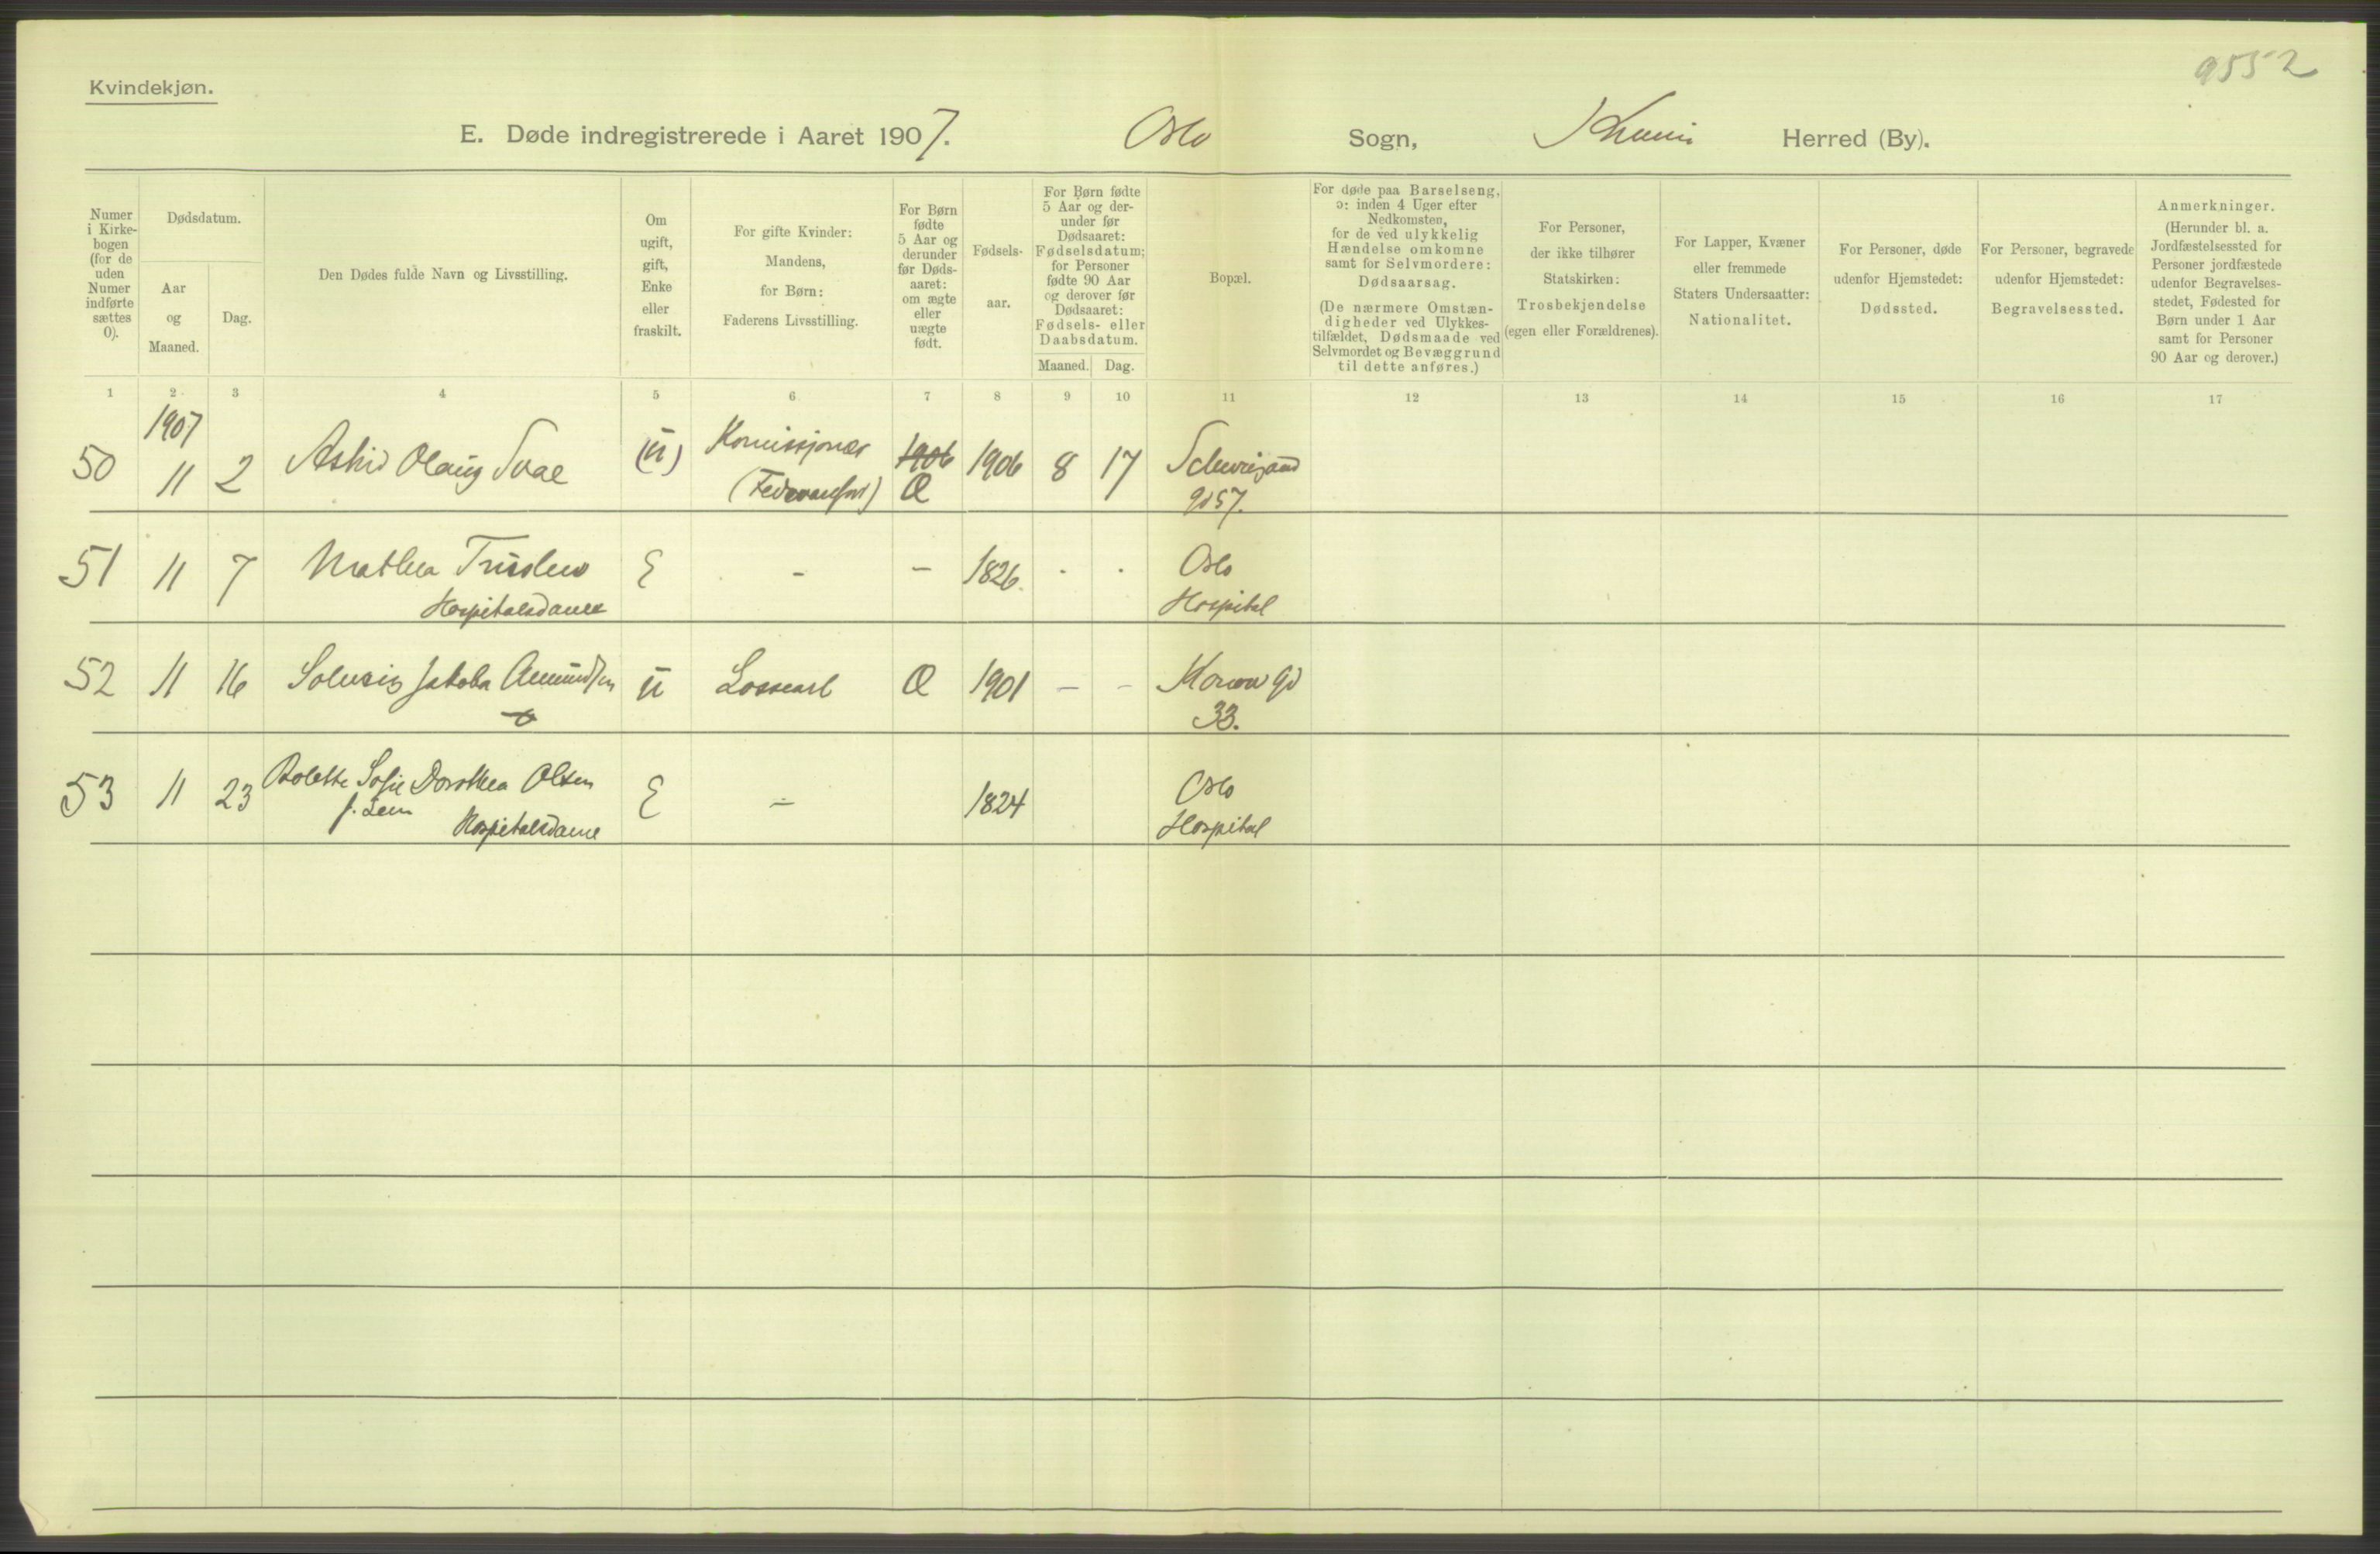 9552
Kvindekjøn.
E. Døde indregistrerede i Aaret 1907. Oslo Sogn, Herred (By).
Numer i Kirkebogen (for de uden Numer indførte sættes 0).
Dødsdatum.
Aar og Maaned.
Dag.
Den Dødes fulde Navn og Livsstilling.
Om ugift, gift, Enke eller fraskilt.
For gifte Kvinder: Mandens, for Børn: Faderens Livsstilling.
For Børn fødte 5 Aar og derunder før Dødsaaret: om ægte eller uægte født.
Fødselsaar.
For Børn fødte 5 Aar og derunder før Dødsaaret: Fødselsdatum; for Personer fødte 90 Aar og derover før Dødsaaret: Fødsels- eller Daabsdatum.
Maaned. Dag.
Bopæl.
For døde paa Barselseng, ɔ: inden 4 Uger efter Nedkomsten, for de ved ulykkelig Hændelse omkomne samt for Selvmordere: Dødsaarsag.
(De nærmere Omstændigheder ved Ulykkestilfældet, Dødsmaade ved Selvmordet og Bevæggrund til dette anføres.)
For Personer, der ikke tilhører Statskirken: Trosbekjendelse (egen eller Forældrenes).
For Lapper, Kvæner eller fremmede Staters Undersaatter: Nationalitet.
For Personer, døde udenfor Hjemstedet: Dødssted.
For Personer, begravede udenfor Hjemstedet: Begravelsessted.
Anmerkninger. (Herunder bl. a. Jordfæstelsessted for Personer jordfæstede udenfor Begravelsesstedet, Fødested for Børn under 1 Aar samt for Personer 90 Aar og derover.)
1 2 3 4 5 6 7 8 9 10 11 12 13 14 15 16 17
1907
50 11 2 Astrid Olaug (u) 1906 1906 8 17
Ɑ gd 57.
51 11 7 Mathea E - - 1826 - -  Oslo
Hospitalsdame Hospital
52 11 16 Solveig Jakoba Amundsen u Ɑ 1901 - - gd
33.
53 11 23 Bolette Sofie Dorothea Olsen E - 1824 Oslo
f. Lem Hospitalsdame Hospital